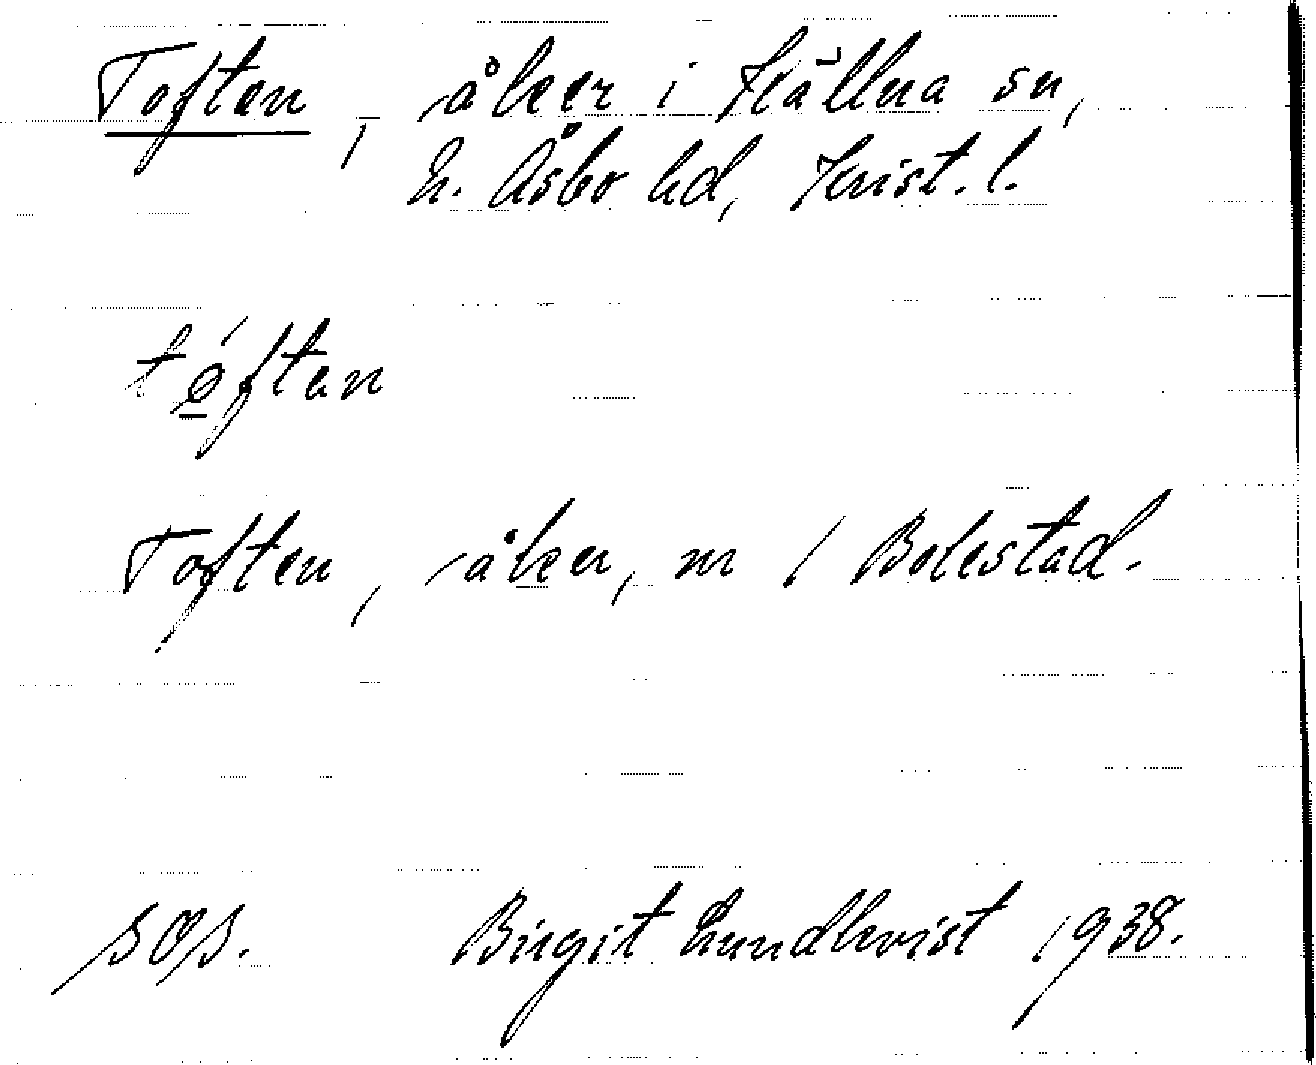 Toften, åker i Källna sn,
N. Åsbo hd, Krist. l.
tóften
Toften, åker, nr 1 Bolestad.
SOS. Birgit Lundkvist 1938.